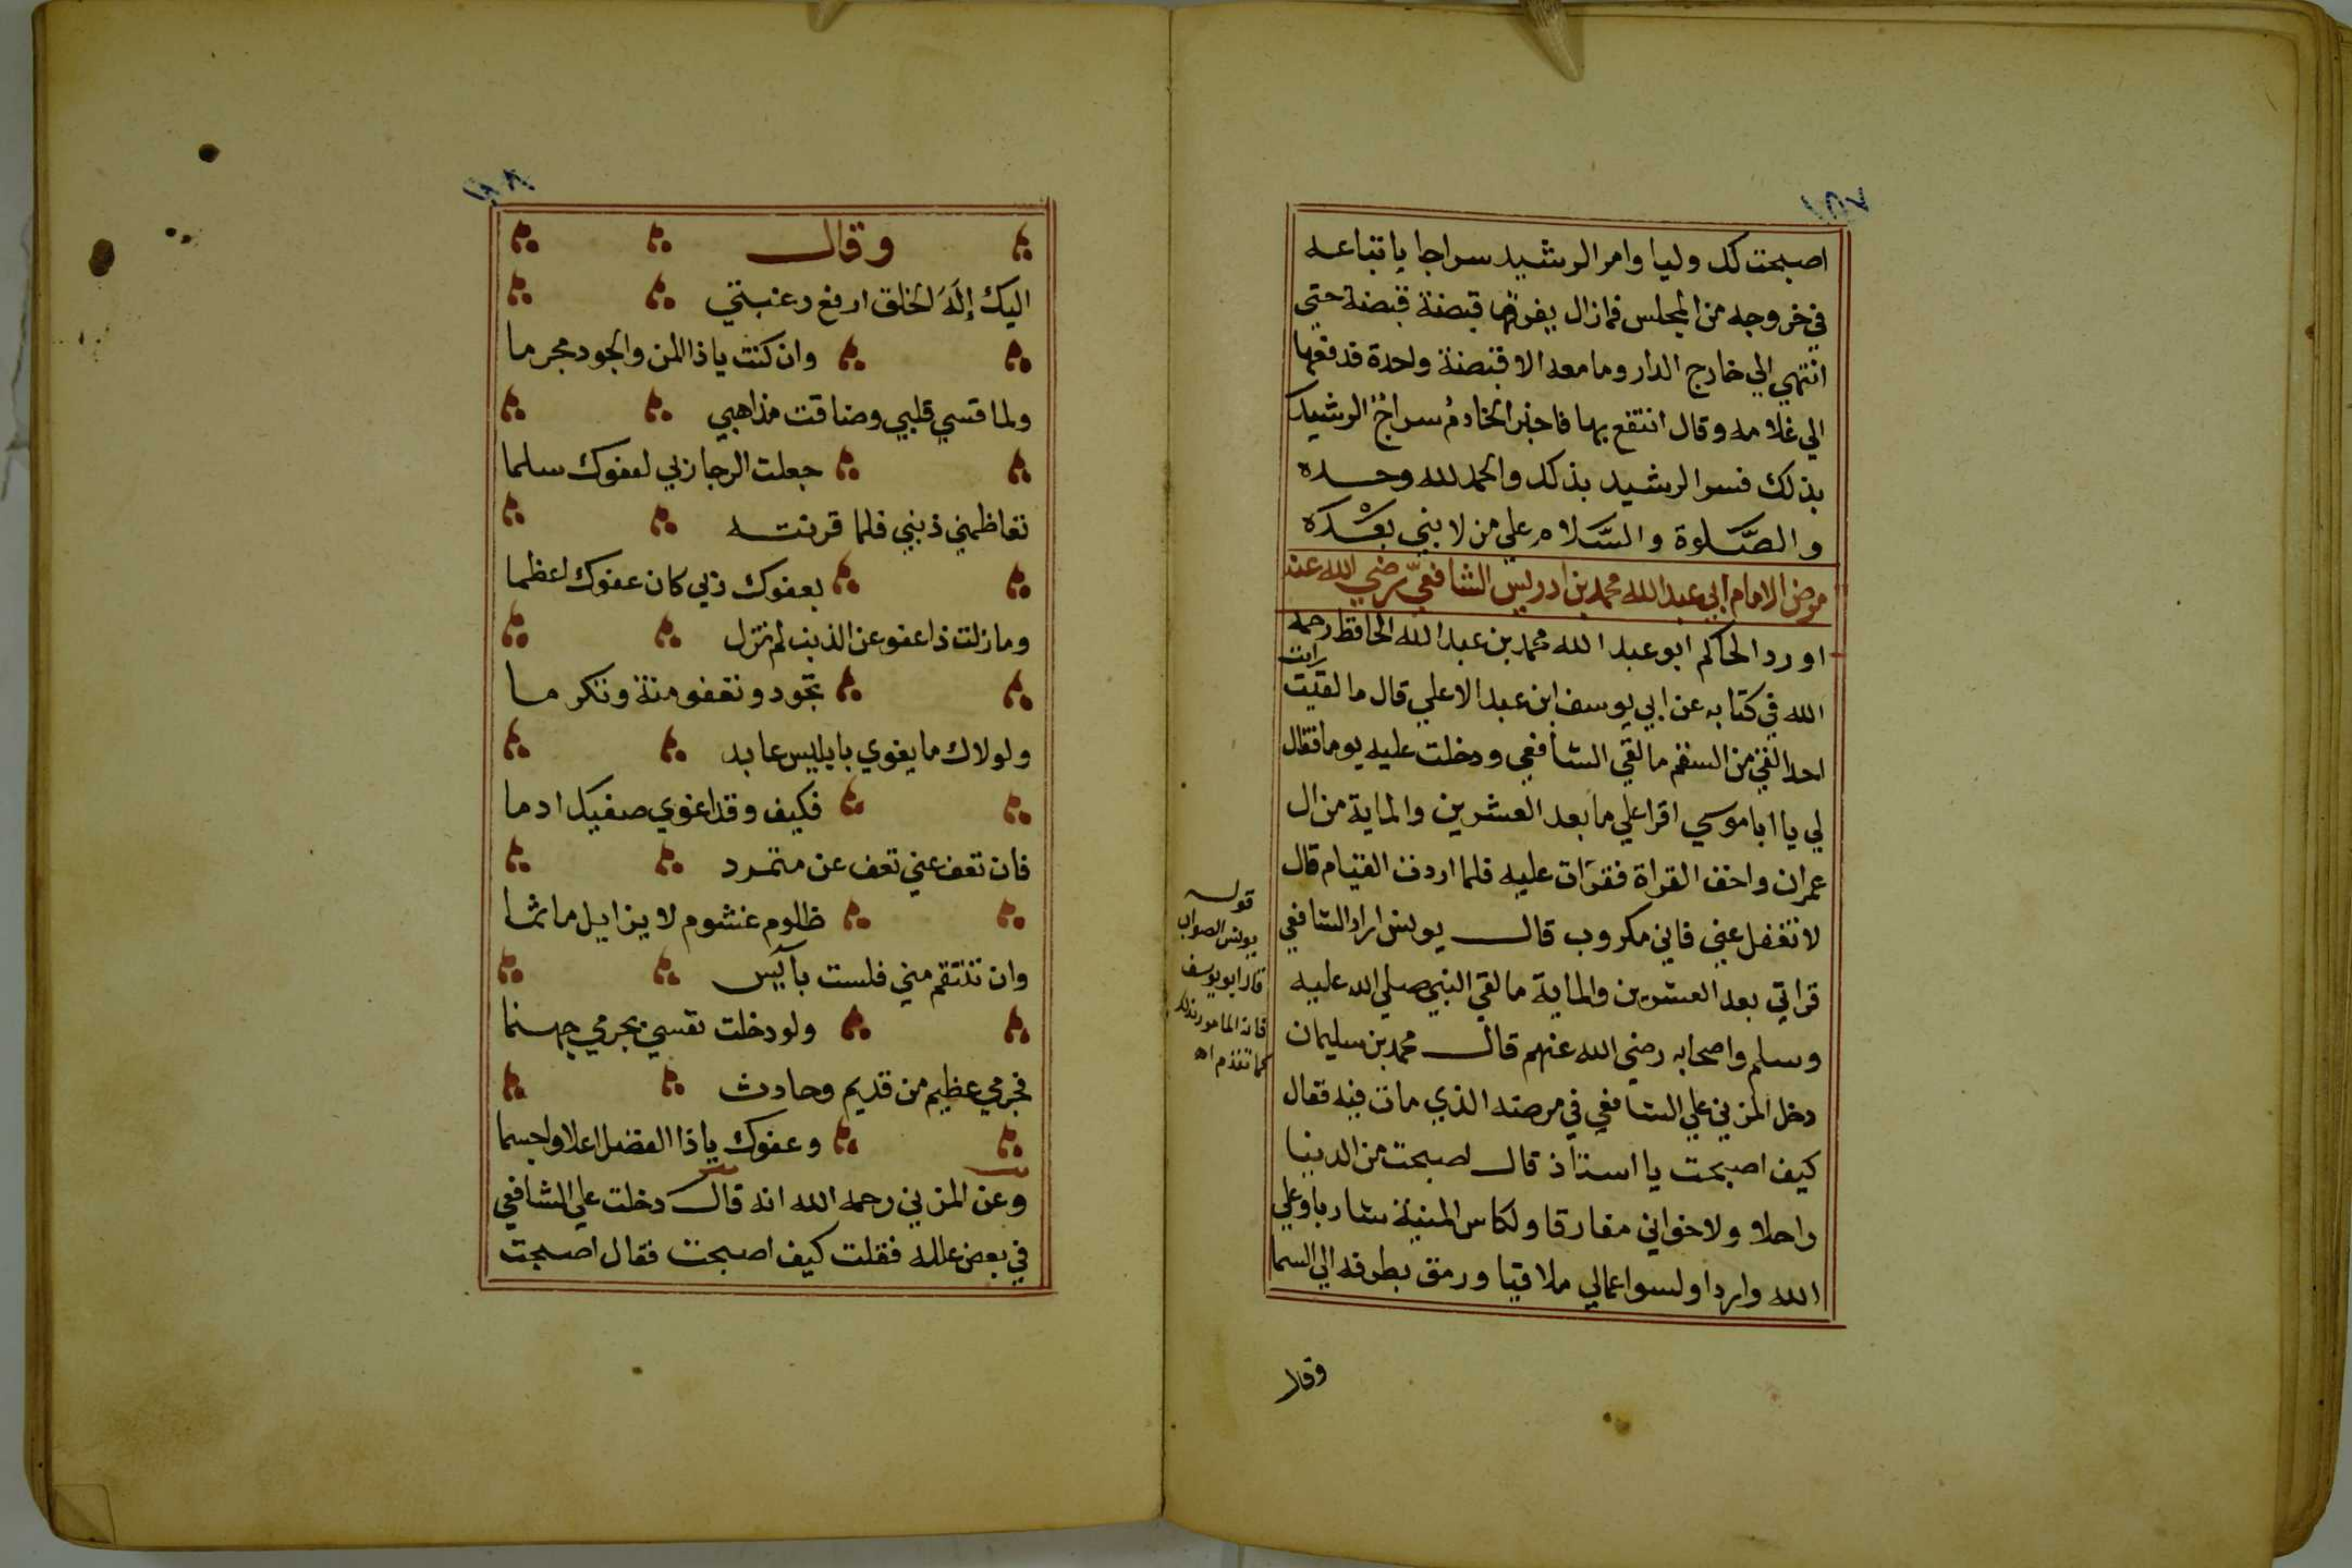 ١٥٧
اصبحت لك وليا وامر الرشيد سراجا باتباعه
في خروجه من المجلس فمازال يفرقها قبضة قبضة حتي
انتهي الي خارج الدار وما معه الا قبضة واحدة فدفعها
الي غلامه وقال انتفع بها فاخبر الخادم سراج الرشيد
بذلك فسر الرشيد بذلك والحمد لله وحده
والصلوة والسلام علي من لا نبي بعده
مرض الامام ابي عبد الله محمد بن ادريس الشافعي رضي الله عنه
اورد الحاكم ابو عبد الله محمد بن عبد الله الحافظ رحمه
رايت
الله في كتابه عن ابي يوسف ابن عبد الاعلي قال ما لقيت
احدا لقي من السقم ما لقي الشافعي ودخلت عليه يوما فقال
لي يا ابا موسي اقرا علي ما بعد العشرين والماية من ال
عمران واخف القراة فقرات عليه فلما اردت القيام قال
لا تغفل عني فاني مكروب قال يونس اراد الشافعي
قراتي بعد العشرين والماية ما لقي النبي صلي الله عليه
وسلم واصحابه رضي الله عنهم قال محمد بن سليمان
دخل المزني علي الشافعي في مرضه الذي مات فيه فقال
كيف اصبحت يا استاذ قال اصبحت من الدنيا
راحلا ولاخواني مفارقا ولكاس المنية شاربا وعلي
الله واردا ولسوا عمالي ملاقيا ورمق بطرفه الي السما
وقال
قوله
يونس الصواب
قال ابو يوسف
فانه المامور بذلك
كما تقدم اه
وقال
اليك إله الخلق ارفع رغبتي
وان كنت يا ذا المن والجود مجرما
ولما قسي قلبي وضاقت مذاهبي
جعلت الرجا ربي لعفوك سلما
تعاظمني ذنبي فلما قرنته
بعفوك ربي كان عفوك اعظما
وما زلت ذا عفو عن الذنب لم تزل
تجود وتعفو منة وتكرما
ولولاك ما يغوي بابليس عابد
فكيف وقد اغوي صفيك ادما
فان تعف عني تعف عن متمرد
ظلوم غشوم لا يزايل ماثما
وان تنتقم مني فلست بآيس
ولو دخلت نفسي بجرمي جهنما
فجرمي عظيم من قديم وحادث
وعفوك يا ذا الفضل اعلا واجسما
وعن المزني رحمه الله انه قال دخلت علي الشافعي
في بعض علله فقلت كيف اصبحت فقال اصبحت